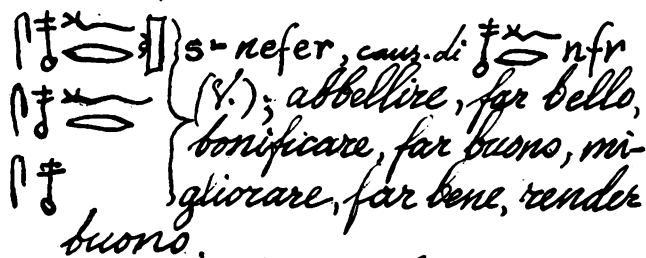 𓋴𓄤𓆑𓂋𓏛 s-nefer, caus. di 𓄤𓆑𓂋 nfr
𓋴𓄤𓆑𓂋 (V.); abbellire, far bello,
bonificare, far buono, mi-
𓋴𓄤 gliorare, far bene, render
buono.